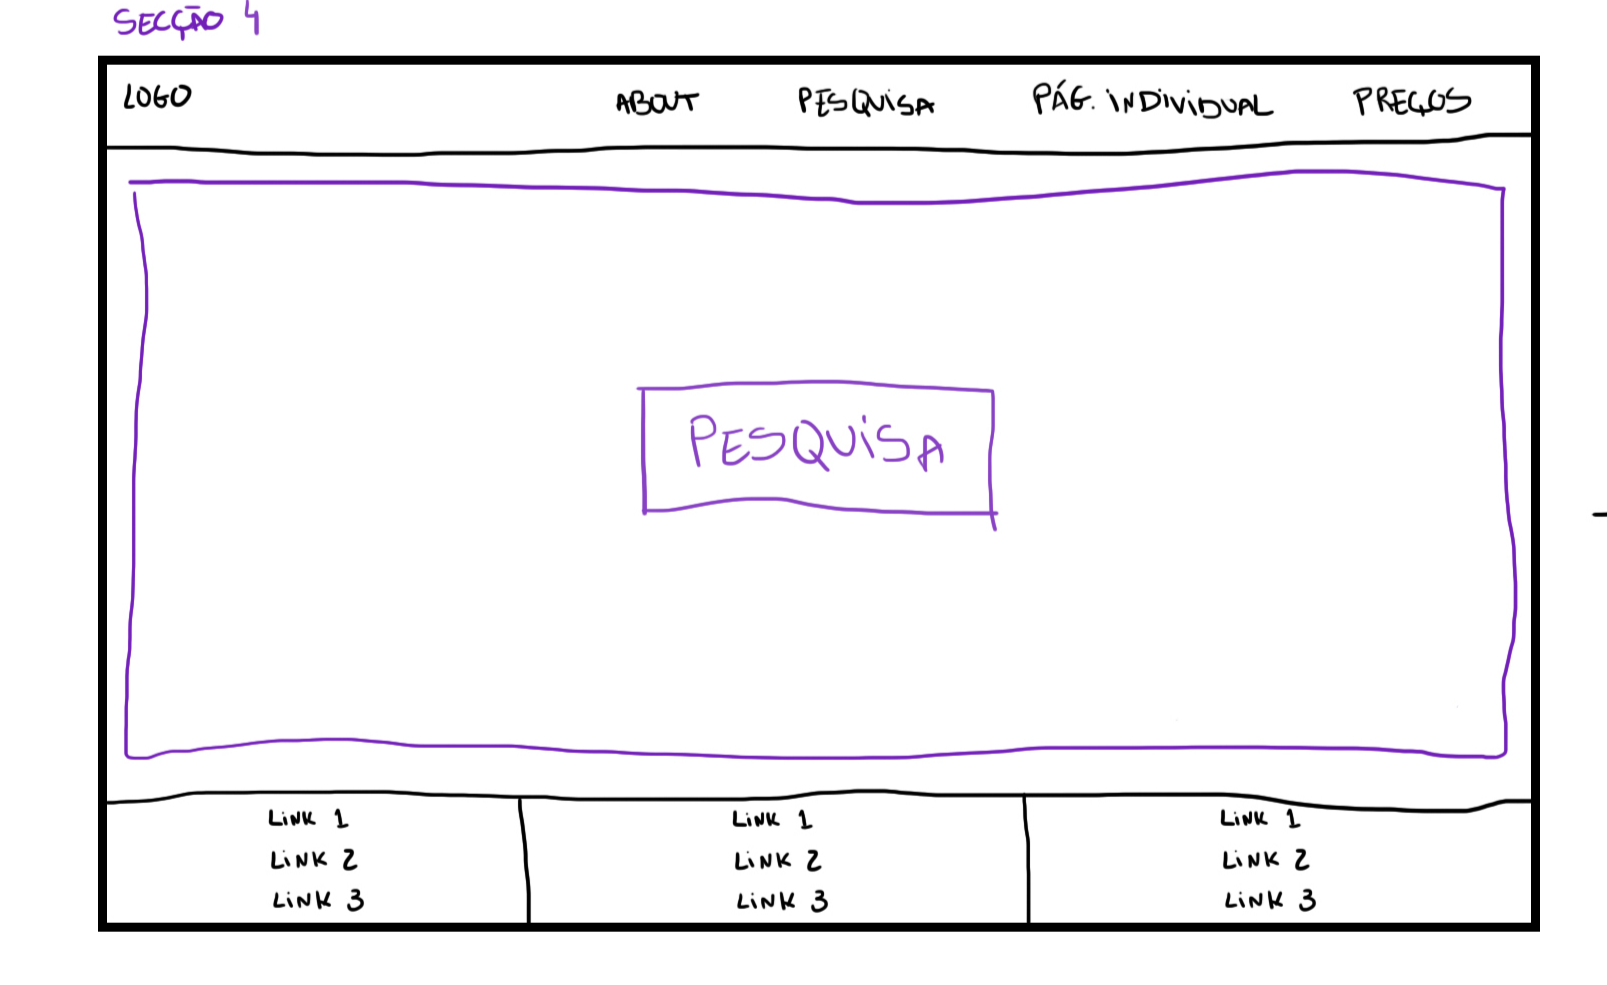 SECÇÃO 4
LOGO ABOUT PESQUISA PÁG. INDIVIDUAL PREÇOS
PESQUISA
LINK 1 LINK 1 LINK 1
LINK 2 LINK 2 LINK 2
LINK 3 LINK 3 LINK 3